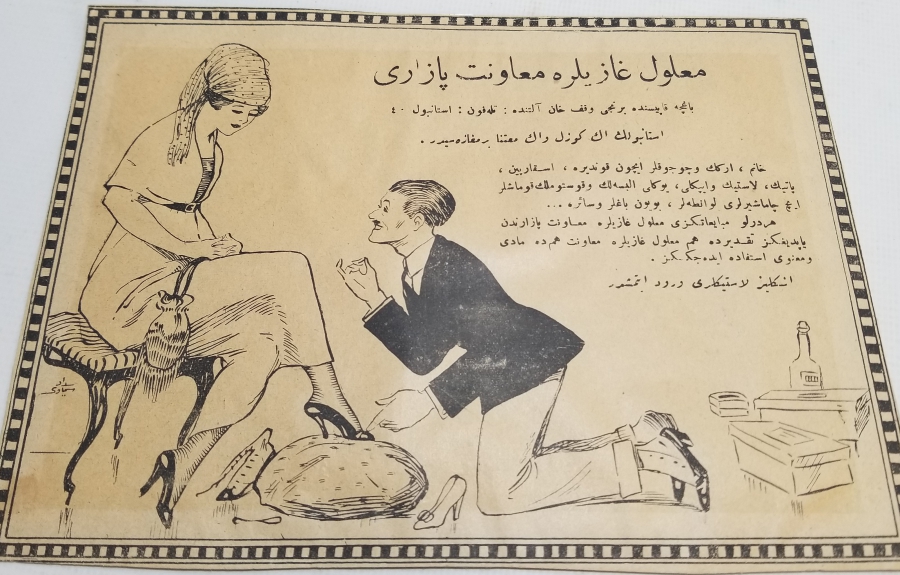 معلول غازیلره معاونت پازاری
باغچه قاپیسنده برنجی وقف خان آلتنده : تلەفون : استانبول ٤٠
استانبولك اك كوزل واك معتنا برمغازه‌سیدر .
خانم ، اركك وچوجوقلر ایچون قوندیره ، اسقارپین ،
پاتیك، لاستیك وایپكلی، یوكلی البسه‌لك وقوستوملك قوماشلر
ایچ چاماشیرلری لوانطه‌لر ، بویون باغلر وسائره ...
هردرلو مبایعاتكزی معلول غازیلره معاونت پازارندن
یاپدیغكز تقدیرده هم معلول غازیلره معاونت هم‌ده مادی
ومعنوی استفاده ایده‌جكسكز .
انكلیز لاستیكلری ورود ایتمشدر